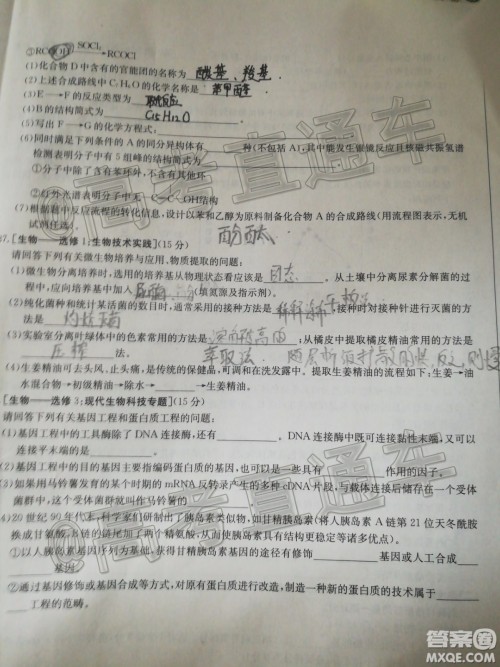 ③RCOOH SOCl₂ RCOCl
(1)化合物 D 中含有的官能团的名称为 酯基、羧基.
(2)上述合成路线中 C₇H₈O 的化学名称是 苯甲醇
(3)E→F 的反应类型为 取代反应
(4)B 的结构简式为
(5)写出 F→G 的化学方程式:
(6)同时满足下列条件的 A 的同分异构体有 种(不包括 A),其中能发生银镜反应且核磁共振氢谱
检测表明分子中有 5 组峰的结构简式为
①分子中含有苯环,不含有其他环
②红外光谱表明分子中无
(7)根据中反应流程的转化信息,设计以苯和乙醇为原料制备化合物 A 的合成路线(用流程图表示,无机
试剂任选).
酚酞
7.[生物——选修 1:生物技术实践](15 分)
请回答下列有关微生物培养与应用、物质提取的问题:
(1)微生物分离培养时,选用的培养基从物理状态看应该是 固态 .从土壤中分离尿素分解菌的
培养基中应加入 (填氮源及指示剂).
(2)纯化菌种和统计某活菌的数目时,通常采用的接种方法是 接种时对接种针进行灭菌的方
法是 灼烧
(3)实验室分离叶绿体中的色素常用的方法是 ;从橘皮中提取橘皮精油常用的方法是
压榨 萃取法
(4)生姜精油可去头风,止头痛,是传统的保健品,可调和在洗发露中.提取生姜精油的流程如下:生姜→油
水混合物→初级精油→除水→ →生姜精油.
[生物——选修 3:现代生物科技专题](15 分)
请回答下列有关基因工程和蛋白质工程的问题:
(1)基因工程中的工具酶除了 DNA 连接酶,还有 .DNA 连接酶中既可连接黏性末端,又可以
连接平末端的是
(2)基因工程中的目的基因主要指编码蛋白质的基因,也可以是一些具有 作用的因子.
(3)如果采用马铃薯发育的某个时期的 mRNA 反转录产生的多种 cDNA 片段,与载体连接后储存在一个受体
菌群中,这个受体菌群就叫作马铃薯的
(4)20 世纪 90 年代末,科学家们研制出了胰岛素类似物,如甘精胰岛素(将人胰岛素 A 链第 21 位天冬酰胺
换成甘氨酸,B 链的链尾增加两个精氨酸,从而使六聚体胰岛素具有结构更稳定等诸多优点).
①以人胰岛素基因序列为基础,获得甘精胰岛素基因的途径有修饰 基因或人工合成
基因.
②通过基因修饰或基因合成等方式,对原有蛋白质进行改造,制造一种新的蛋白质的技术属于
工程的范畴.
@高考直通车
@高考直通车
答案圈
MXQE.COM